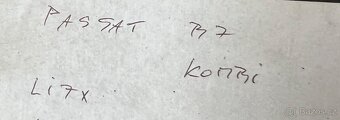 PASSAT B7
KOMBI
LI7X